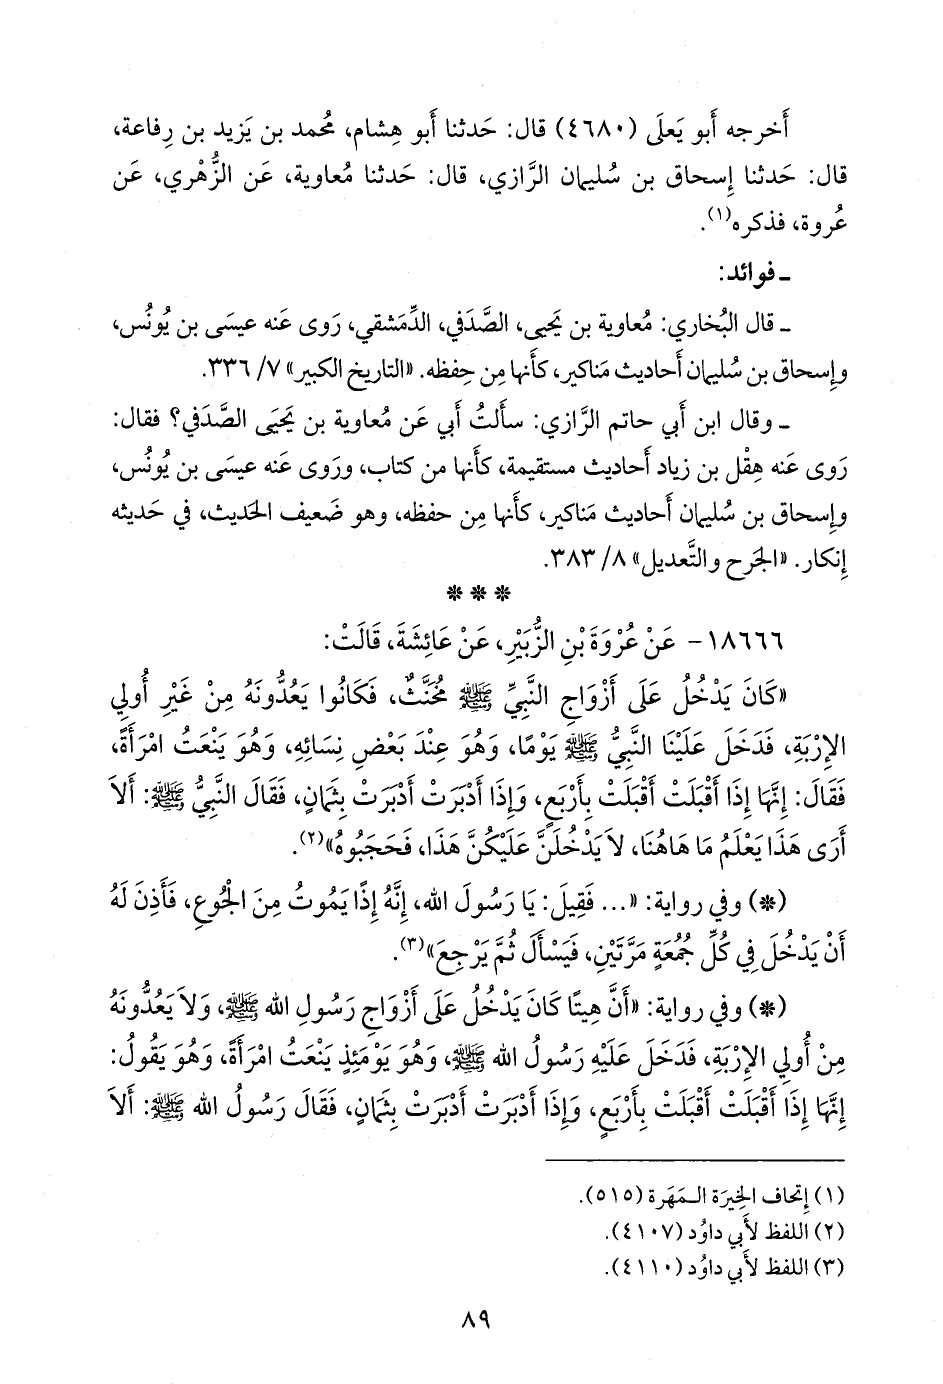 أَخرجه أَبو يَعلَى (٤٦٨٠) قال: حَدثنا أَبو هِشام، مُحمد بن يَزيد بن رِفاعة،
قال: حَدثنا إِسحاق بن سُليمان الرَّازي، قال: حَدثنا مُعاوية، عَن الزُّهْري، عَن
عُروة، فذكره(١).
ـ فوائد:
ـ قال البُخاري: مُعاوية بن يَحيى، الصَّدَفي، الدِّمَشقي، رَوى عَنه عيسَى بن يُونُس،
وإِسحاق بن سُليمان أَحاديث مَناكير، كأَنها مِن حِفظه. «التاريخ الكبير» ٧/ ٣٣٦.
ـ وقال ابن أَبي حاتم الرَّازي: سأَلتُ أَبي عَن مُعاوية بن يَحيَى الصَّدَفي؟ فقال:
رَوى عَنه هِقْل بن زياد أَحاديث مستقيمة، كأَنها من كتاب، ورَوى عَنه عيسَى بن يُونُس،
وإِسحاق بن سُليمان أَحاديث مَناكير، كأَنها مِن حفظه، وهو ضَعيف الحَديث، في حَديثه
إِنكار. «الجَرح والتَّعديل» ٨/ ٣٨٣.
* * *
١٨٦٦٦- عَنْ عُرْوَةَ بْنِ الزُّبَيْرِ، عَنْ عَائِشَةَ، قَالَتْ:
«كَانَ يَدْخُلُ عَلَى أَزْوَاجِ النَّبِيِّ ﷺ مُخَنَّثٌ، فَكَانُوا يَعُدُّونَهُ مِنْ غَيْرِ أُولِي
الإِرْبَةِ، فَدَخَلَ عَلَيْنَا النَّبِيُّ ﷺ يَوْمًا، وَهُوَ عِنْدَ بَعْضِ نِسَائِهِ، وَهُوَ يَنْعَتُ امْرَأَةً،
فَقَالَ: إِنَّهَا إِذَا أَقْبَلَتْ أَقْبَلَتْ بِأَرْبَعٍ، وَإِذَا أَدْبَرَتْ أَدْبَرَتْ بِثَمَانٍ، فَقَالَ النَّبِيُّ ﷺ: أَلاَ
أَرَى هَذَا يَعْلَمُ مَا هَاهُنَا، لاَ يَدْخُلَنَّ عَلَيْكُنَّ هَذَا، فَحَجَبُوهُ»(٢).
(*) وفي رواية: «... فَقِيلَ: يَا رَسُولَ الله، إِنَّهُ إِذًا يَمُوتُ مِنَ الْجُوعِ، فَأَذِنَ لَهُ
أَنْ يَدْخُلَ فِي كُلِّ جُمُعَةٍ مَرَّتَيْنِ، فَيَسْأَلَ ثُمَّ يَرْجِعَ»(٣).
(*) وفي رواية: «أَنَّ هِيتًا كَانَ يَدْخُلُ عَلَى أَزْوَاجِ رَسُولِ الله ﷺ، وَلاَ يَعُدُّونَهُ
مِنْ أُولِي الإِرْبَةِ، فَدَخَلَ عَلَيْهِ رَسُولُ الله ﷺ، وَهُوَ يَوْمَئِذٍ يَنْعَتُ امْرَأَةً، وَهُوَ يَقُولُ:
إِنَّهَا إِذَا أَقْبَلَتْ أَقْبَلَتْ بِأَرْبَعٍ، وَإِذَا أَدْبَرَتْ أَدْبَرَتْ بِثَمَانٍ، فَقَالَ رَسُولُ الله ﷺ: أَلاَ
(١) إِتحاف الخِيرَة المَهَرة (٥١٥).
(٢) اللفظ لأَبي داوُد (٤١٠٧).
(٣) اللفظ لأَبي داوُد (٤١١٠).
٨٩